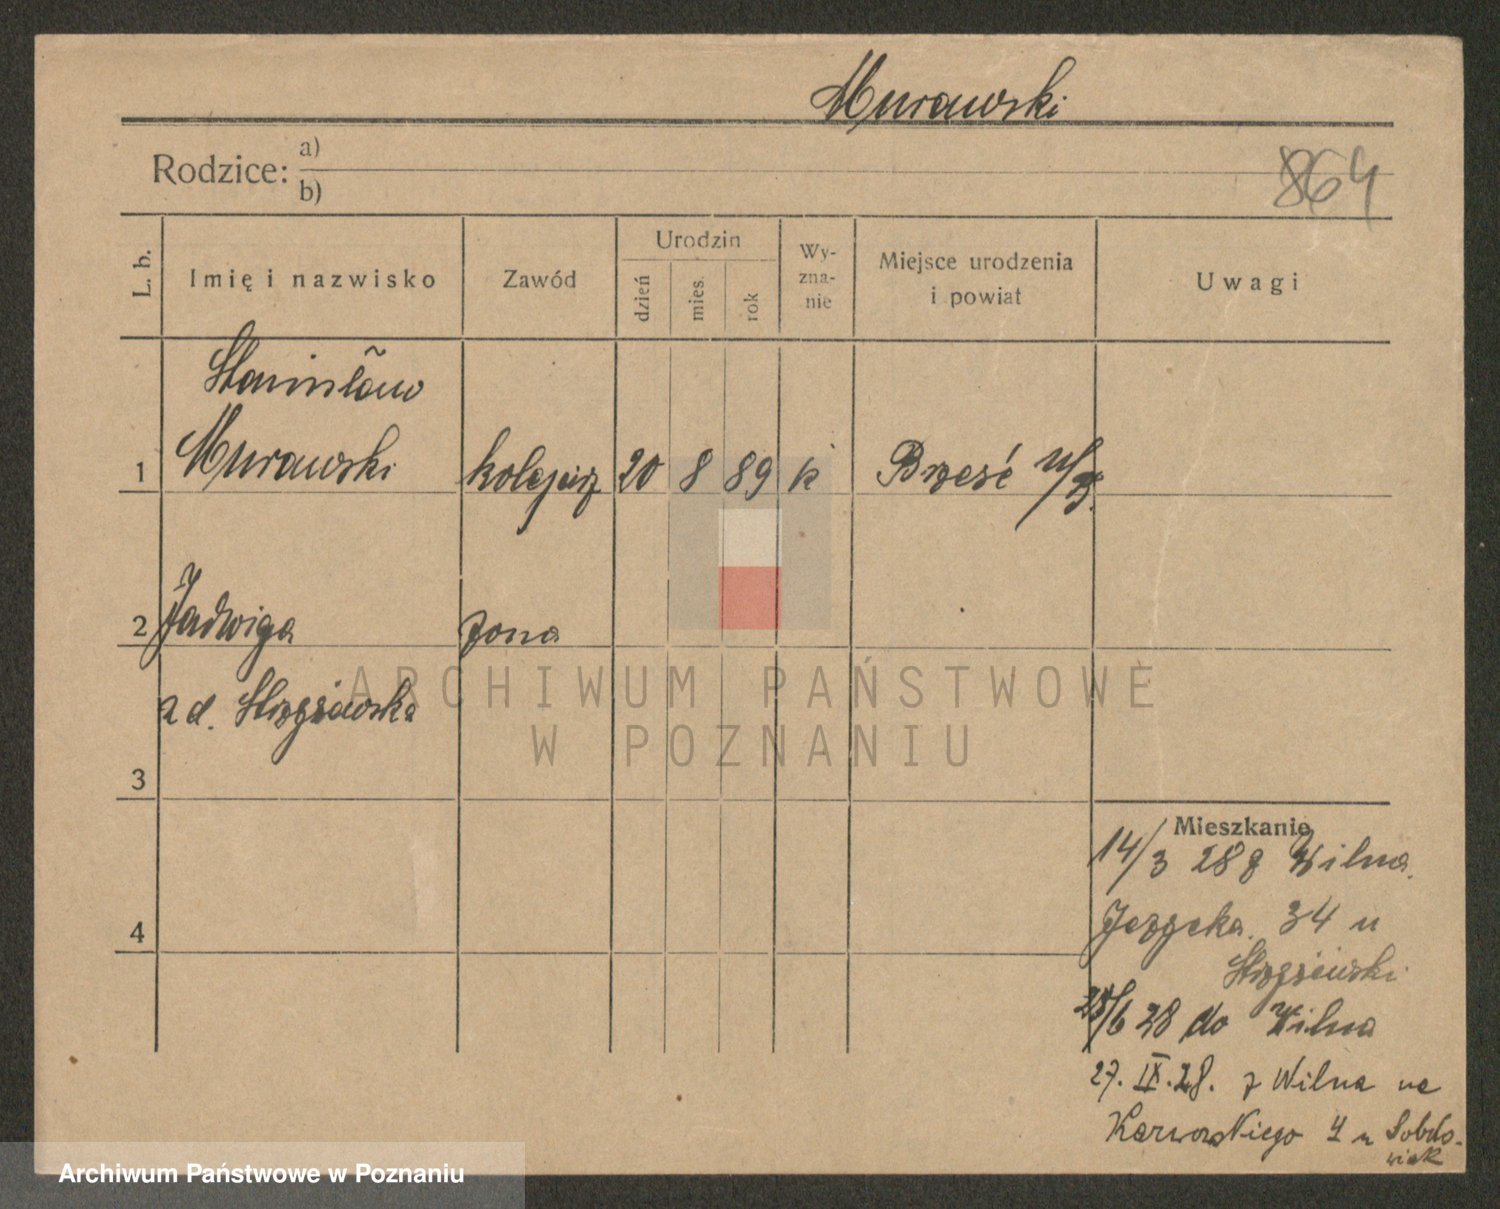 Murawski
Rodzice: a)
b)
864
L. b.
Imię i nazwisko
Zawód
Urodzin
dzień
mies.
rok
Wy-
zna-
nie
Miejsce urodzenia
i powiat
Uwagi
Stanisław
1 Murawski kolejarz 20 8 89 k Brześć n/B.
2 Jadwiga żona
z d. Strzyżewska
3
4
Mieszkanie
14/3 28 z Wilna
Jeżycka 34 u
Strzyżewski
28/6 28 do Wilna
27. IX. 28. z Wilna na
Karwowskiego 4 u
ARCHIWUM PAŃSTWOWE
W POZNANIU
Archiwum Państwowe w Poznaniu